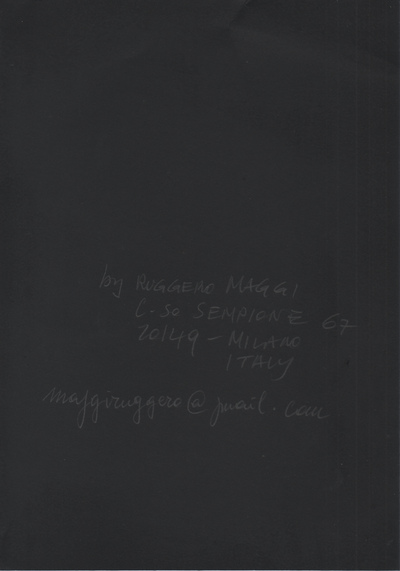 by RUGGERO MAGGI
C.SO SEMPIONE 67
20149 - MILANO
ITALY
maggiruggero@gmail.com